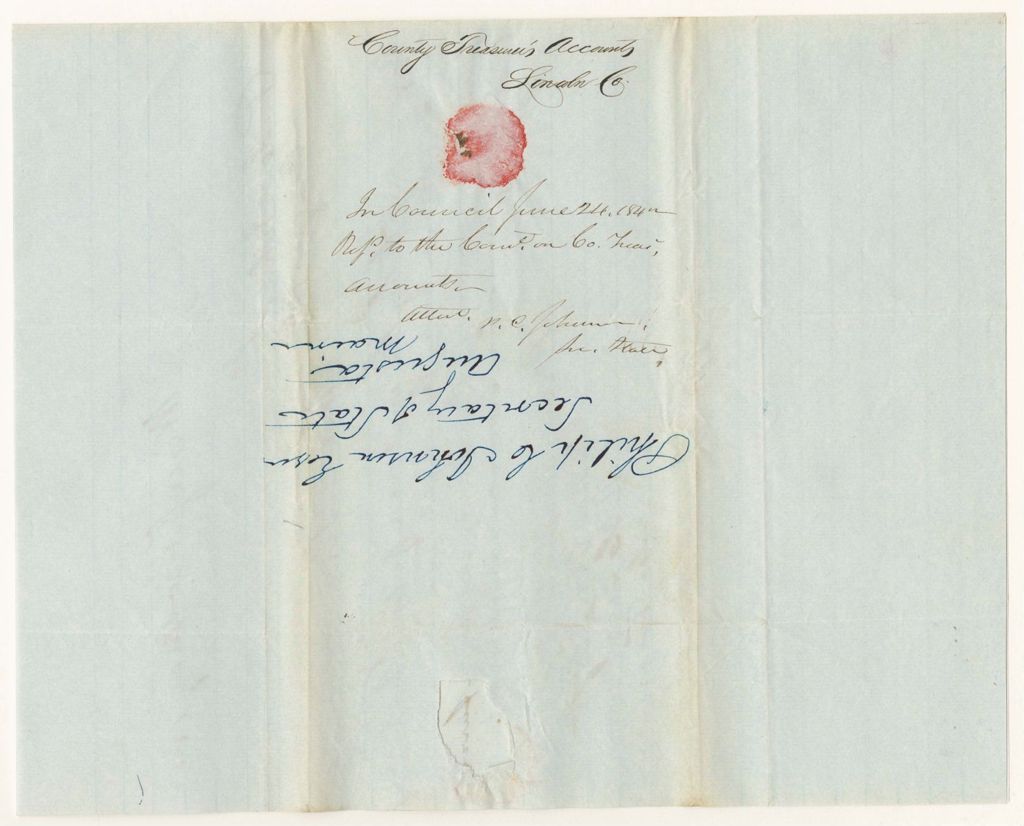 County Treasurer's Accounts
Lincoln Co.
In Council June 24. 184
Refd. to the Comee. on Co. Treas,
accounts
Attest. P. C. Johnson
Sec. State
Philip C Johnson Esqr
Secretary of State
Augusta.
Maine